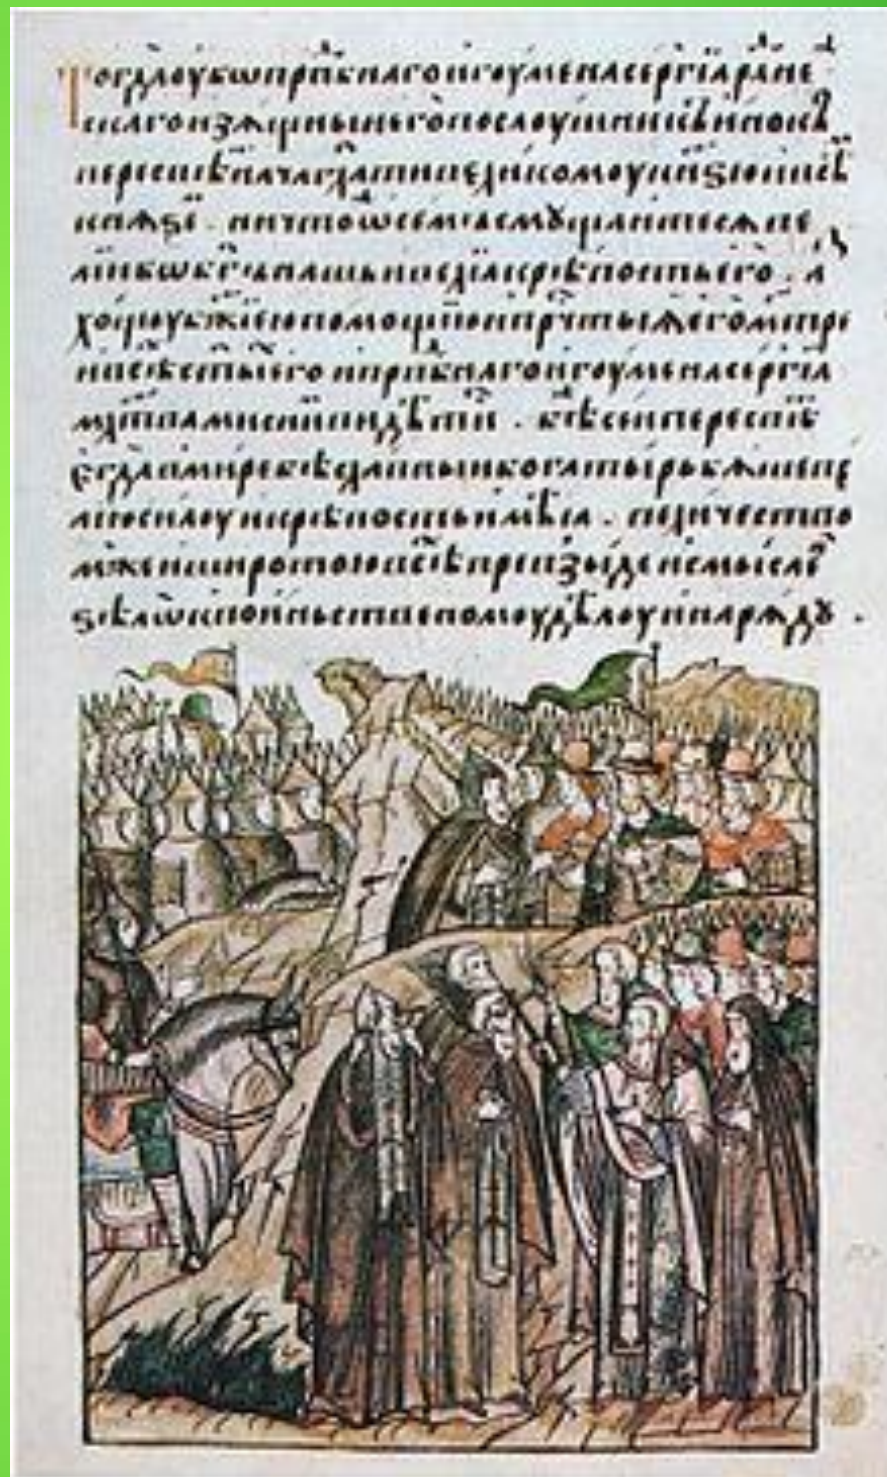 Тогда оубѡ прпⷣбнаго игоумена сергїа раⷣне
скаго изѧщныи его послоушникъ инокъ
пересвѣⷮ нача гл҃ати великомоу кн҃ѕю и всѣⷨ
кнѧѕеⷨ . ничто ѡ семъ семꙋ щаитесѧ ве
ликъ б҃гъ нашь и велїа крѣпость его . аⷥ
хощоу бж҃їею помощїю и прⷱтыѧ его мт҃ре
и всѣⷯ ст҃ыⷯ его и прпⷣбнаго игоумена сергїа
мл҃твами с ниⷨ видѣтиⷭ . бѣ сеи пересвѣⷮ
егда в мире бѣ славныи богатырь бѧше ве
лию силоу и крѣпость имѣѧ . величествоⷨ
же и широтою всѣⷯ превзыде и смыслеⷩ
ѕѣлѡ к воиньственомоу дѣлоу и нарѧдꙋ .